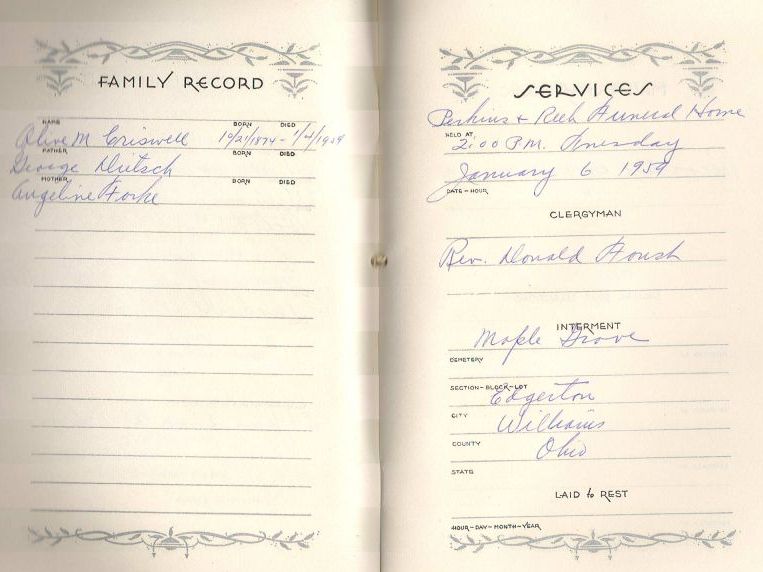 FAMILY RECORD
NAME BORN DIED
Olive M Criswell 10/21/1874 - 1/4/1959
FATHER BORN DIED
George Dietsch
MOTHER BORN DIED
Angeline
SERVICES
Perkins & Reeb Funeral Home
HELD AT
2:00 P.M. Tuesday
January 6 1959
DATE-HOUR
CLERGYMAN
Rev. Donald Housh
INTERMENT
Maple Grove
CEMETERY
SECTION-BLOCK-LOT
Edgerton
CITY
Williams
COUNTY
Ohio
STATE
LAID to REST
HOUR-DAY-MONTH-YEAR